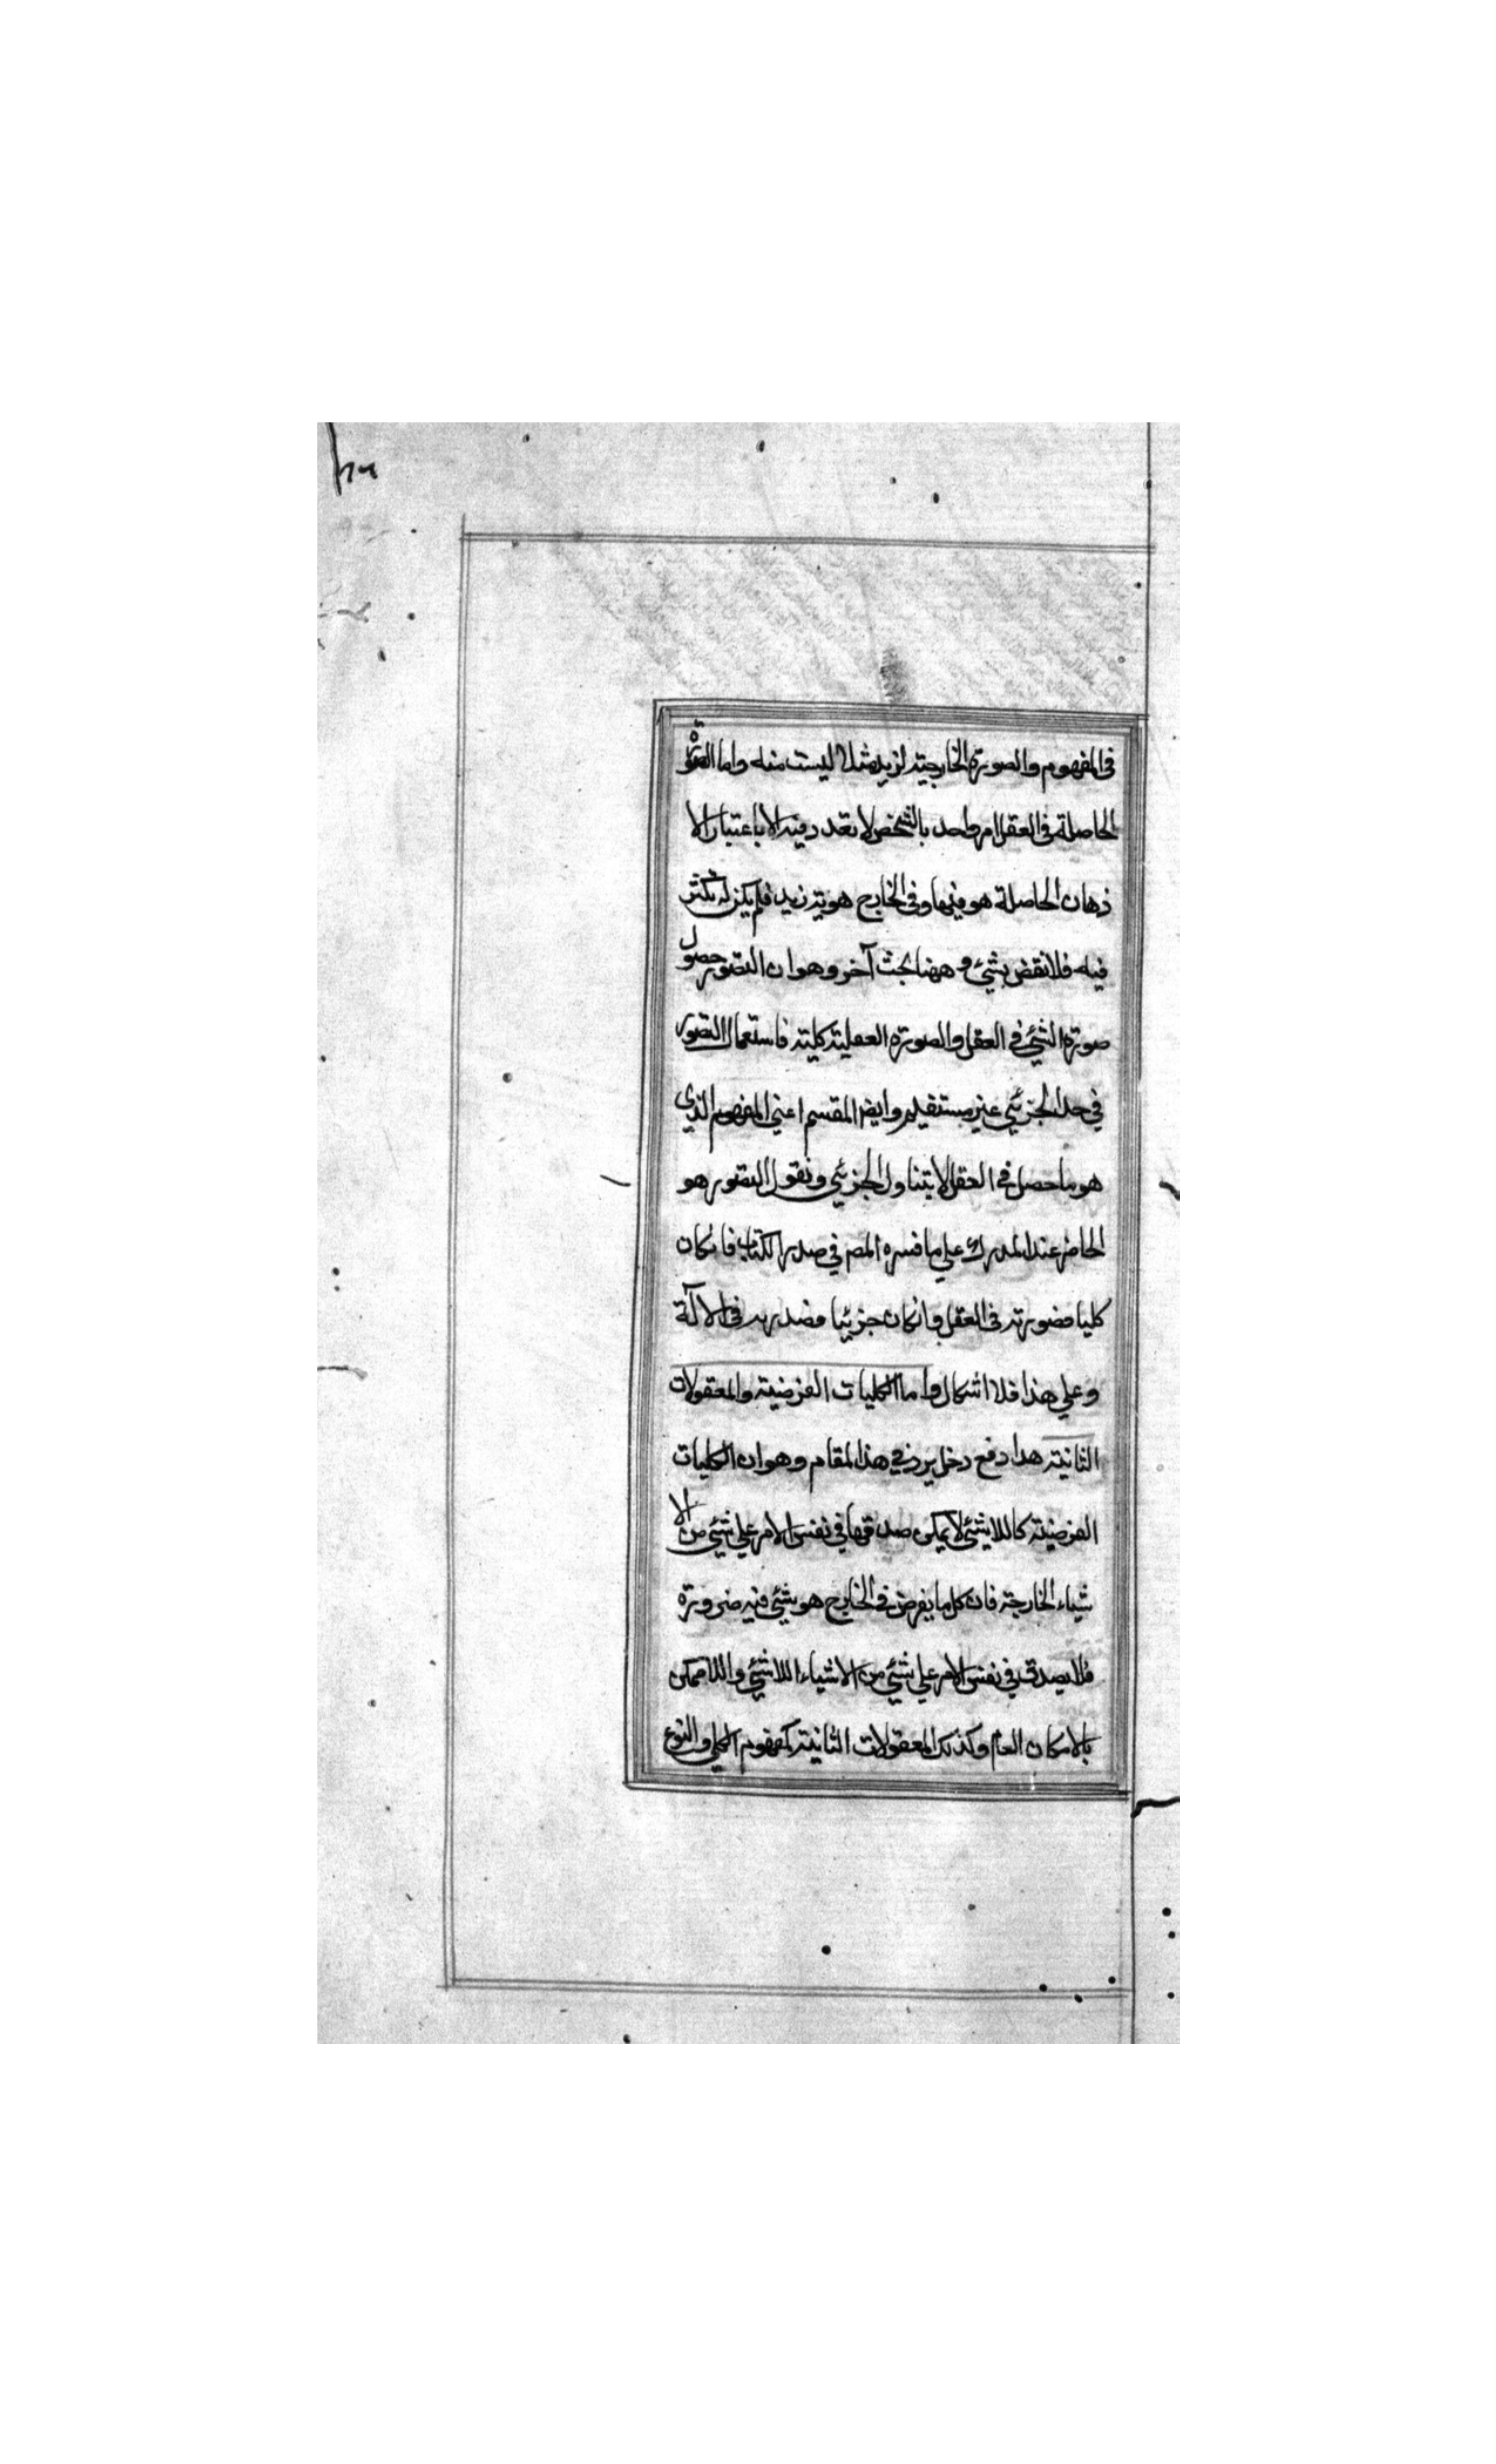 فى المفهوم والصورة الخارجية لزيد مثلا ليست منه واما الصورة
الحاصلة فى العقل امر واحد بالشخص لا تعدد فيه الا باعتبار الا
ذهان الحاصلة هو فيها وفى الخارج هوية زيد فلم يكن له تكثر
فيه فلا نقض بشئ و ههنا بحث آخر وهو ان التصور حصول
صورة الشئ فى العقل والصورة العقلية كلية فاستعمال التصور
في حد الجزئي غير مستقيم وايضا المقسم اعني المفهوم الذى
هو ما حصل في العقل لا يتناول الجزئي ونقول التصور هو
الحاضر عند المدرك علي ما فسره المص في صدر الكتاب فان كان
كليا فصورته فى العقل وان كان جزئيا فصورته فى الالآة
وعلي هذا فلا اشكال واما الكليات الفرضية والمعقولات
الثانية هذا دفع دخل يرد في هذا المقام وهو ان الكليات
الفرضية كاللاشئ لا يمكن صدقها في نفس الامر علي شئي من الا
شياء الخارجة فان كل ما يفرض في الخارج هو شئي فيه ضرورة
فلا يصدق في نفس الامر علي شئي من الاشياء اللاشئي واللاممكن
بالامكان العام وكذلك المعقولات الثانية كمفهوم الكلي والنوع